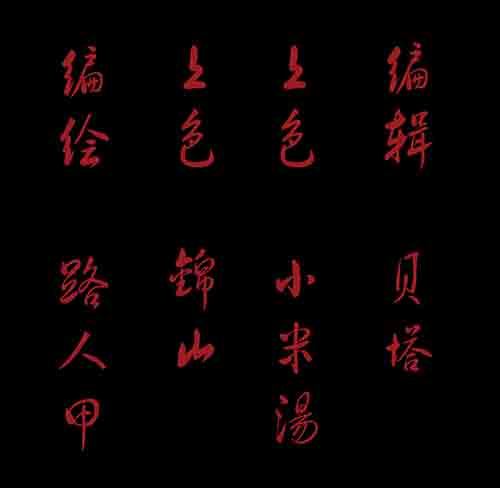 编绘 路人甲
上色 錦山
上色 小米湯
编辑 贝塔